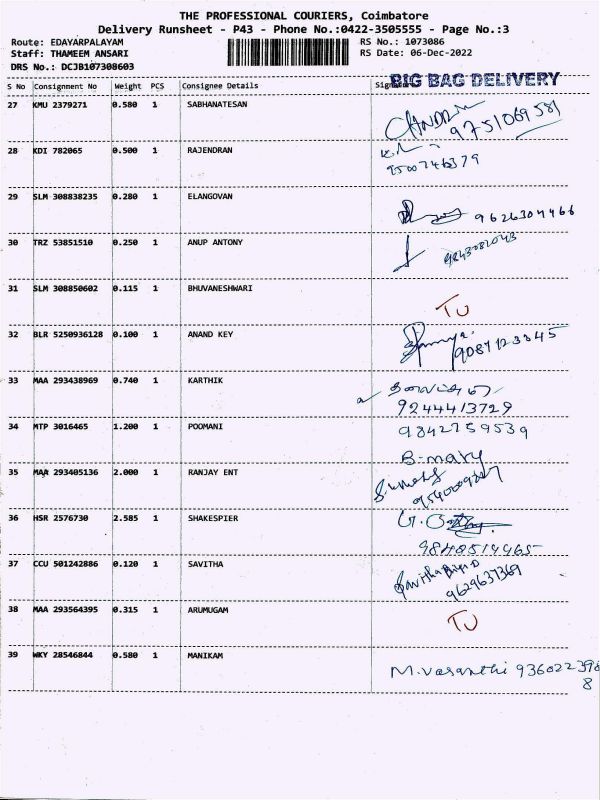 THE PROFESSIONAL COURIERS, Coimbatore
Delivery Runsheet - P43 - Phone No.:0422-3505555 - Page No.:3
Route: EDAYARPALAYAM RS No.: 1073086
Staff: THAMEEM ANSARI RS Date: 06-Dec-2022
DRS No.: DCJB107308603
BIG BAG DELIVERY
S No Consignment No Weight PCS Consignee Details
27 KMU 2379271 0.580 1 SABHANATESAN
9751069581
28 KDI 782065 0.500 1 RAJENDRAN
9500746379
29 SLM 308838235 0.280 1 ELANGOVAN
9626304466
30 TRZ 53851510 0.250 1 ANUP ANTONY
9843082043
31 SLM 308850602 0.115 1 BHUVANESHWARI
TU
32 BLR 5250936128 0.100 1 ANAND KEY
9087123345
33 MAA 293438969 0.740 1 KARTHIK
9244413729
34 MTP 3016465 1.200 1 POOMANI
9842759539
B-mary
35 MAA 293405136 2.000 1 RANJAY ENT
36 HSR 2576730 2.585 1 SHAKESPIER
9840514465
37 CCU 501242886 0.120 1 SAVITHA
9629637369
38 MAA 293564395 0.315 1 ARUMUGAM
TU
39 WKY 28546844 0.580 1 MANIKAM
M.vasanthi 936022390
8